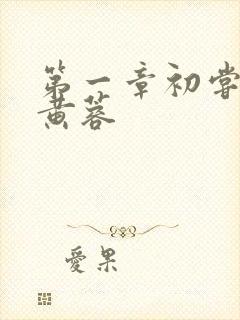 第一章初嘗
黄蓉
愛果